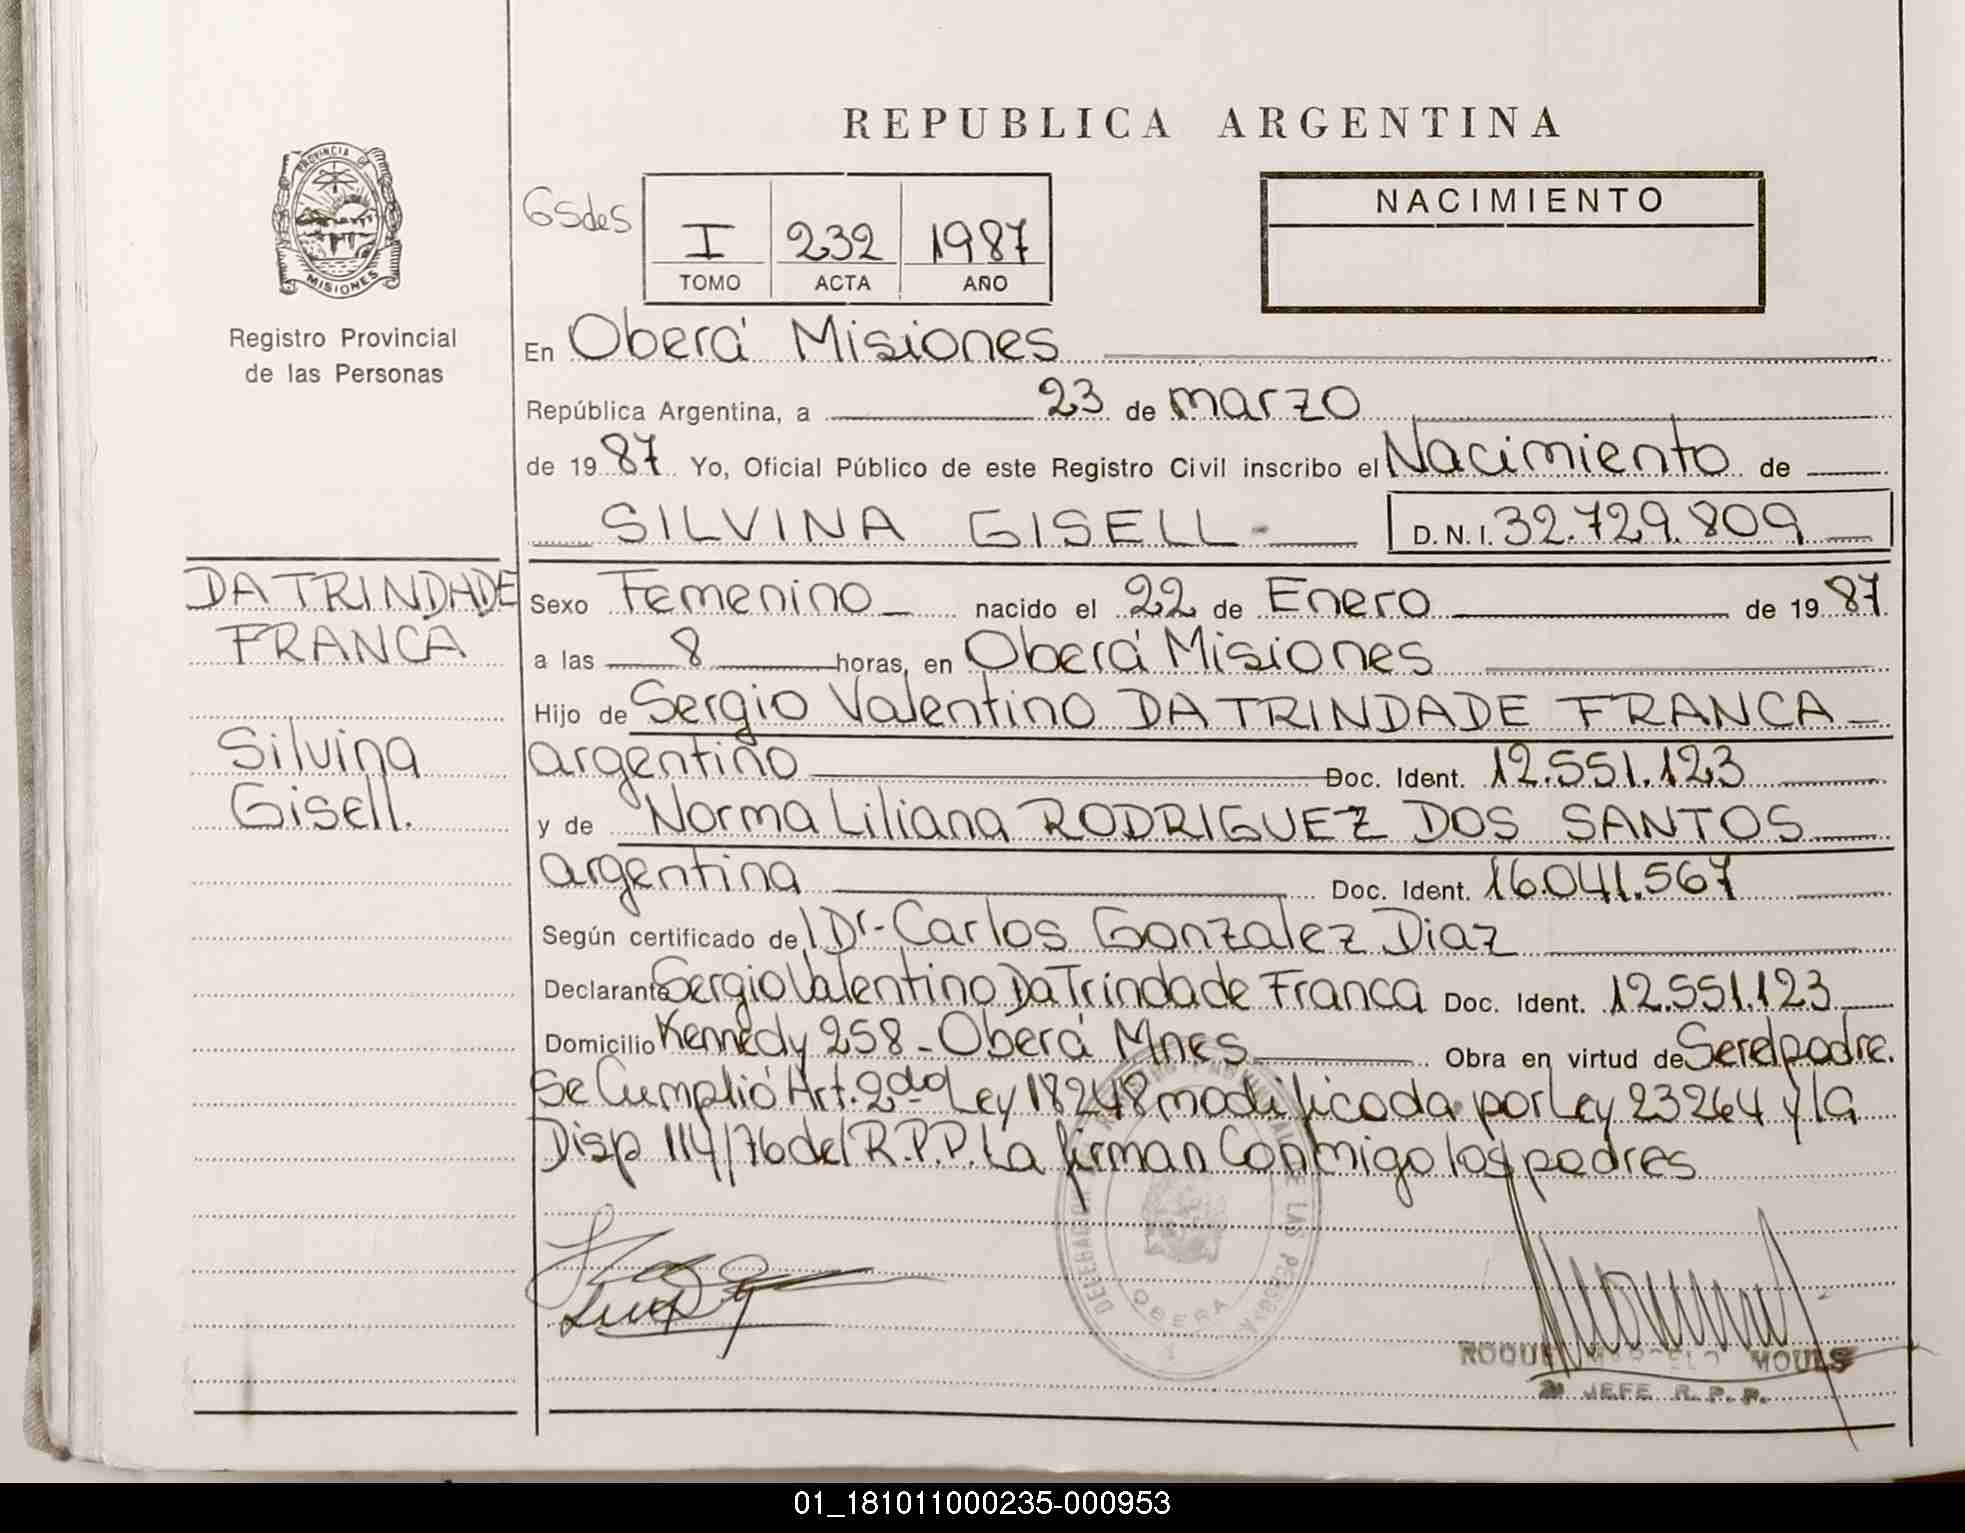 REPUBLICA ARGENTINA
PROVINCIA DE
MISIONES
Registro Provincial
de las Personas
I 232 1987
TOMO ACTA AÑO
NACIMIENTO
En Oberá Misiones
República Argentina, a 23 de marzo
de 1987 Yo, Oficial Público de este Registro Civil inscribo el Nacimiento de
SILVINA GISELL- D.N.I. 32.729.809
DA TRINDADE
FRANCA
Silvina
Gisell.
Sexo Femenino nacido el 22 de Enero de 1987
a las 8 horas, en Oberá Misiones
Hijo de Sergio Valentino DA TRINDADE FRANCA
argentino Doc. Ident. 12.551.123
y de Norma Liliana RODRIGUEZ DOS SANTOS
argentina Doc. Ident. 16.041.567
Según certificado del Dr- Carlos Gonzalez Diaz
Declarante Sergio Valentino Da Trindade Franca Doc. Ident. 12.551.123
Domicilio Kennedy 258 - Oberá Mnes Obra en virtud de Ser el padre.
Se Cumplió Art. 2do Ley 18248 modificada por Ley 23264 y la
Disp 114/76 del R.P.P. La firman Conmigo los padres
OBERA
ROQUE MARCELO MOULS
2º JEFE R.P.P.
01_181011000235-000953